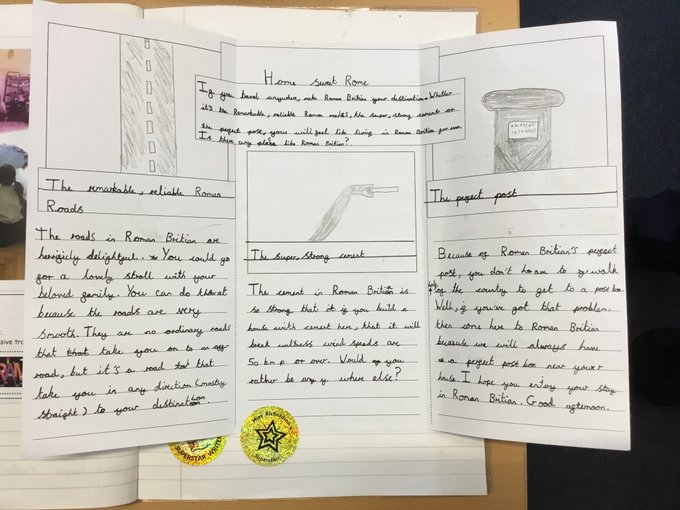 Home sweet Rome
If you travel anywhere, make Roman Britian your destination. Whether
it's the Remarkable, reliable Roman roads, the super, strong cement or
the perfect post, youw will feel like living in Roman Britian for ever.
Is there any place like Roman Britian?
The remarkable, reliable Roman
Roads
The roads in Roman Britian are
delightful. You could go
for a lovely stroll with your
beloved family. You can do that
because the roads are very
smooth. They are no ordinary roads
that take you on to an
road, but it's a road that
take you in any direction (mostly
straight) to your destination.
The super, strong cement
The cement in Roman Britian is
so strong that if you build a
house with cement here, that it will
break unless wind speeds are
50 kmp or over. Would you
rather be any where else?
The perfect post
Because of Roman Britian's perfect
post, you don't have to walk
half
of the country to get to a post box.
Well, if you've got that problem,
then come here to Roman Britian
because we will always have
a perfect post box near your
house. I hope you enjoy your stay
in Roman Britian. Good afternoon.
SUPERSTAR WRITER